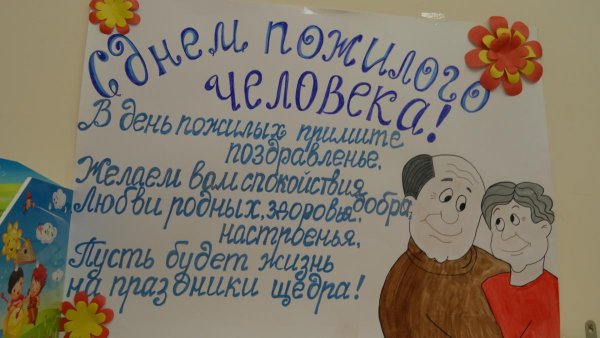 С днем пожилого
человека!
В день пожилых примите
поздравленье,
Желаем вам спокойствия,
добра,
Любви родных, здоровья,
настроенья,
Пусть будет жизнь
на праздники щедра!